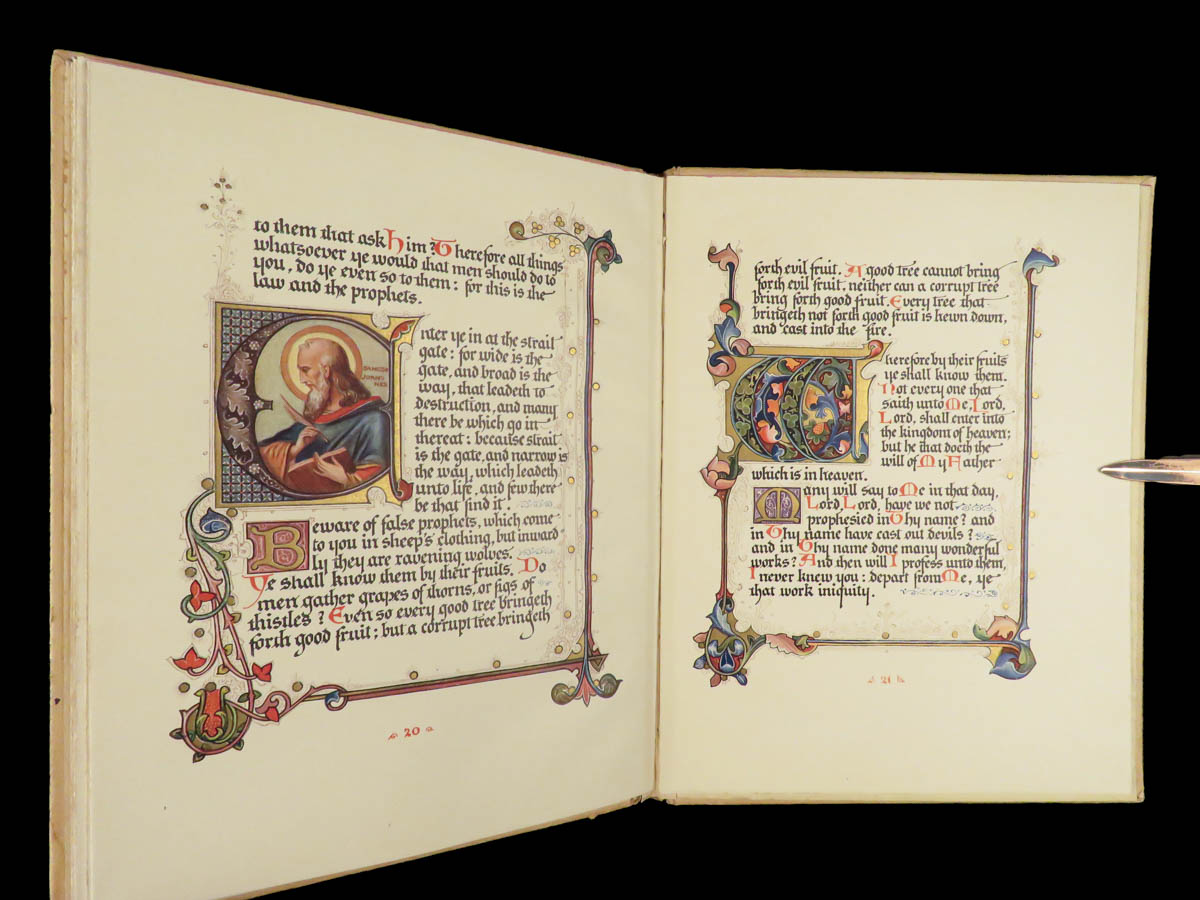 to them that ask Him? Therefore all things
whatsoever ye would that men should do to
you, do ye even so to them: for this is the
law and the prophets.
SANCTUS
JOHAN
NES
Enter ye in at the strait
gate: for wide is the
gate, and broad is the
way, that leadeth to
destruction, and many
there be which go in
thereat: because strait
is the gate, and narrow is
the way, which leadeth
unto life, and few there
be that find it.
Beware of false prophets, which come
to you in sheep's clothing, but inward
ly they are ravening wolves.
Ye shall know them by their fruits. Do
men gather grapes of thorns, or figs of
thistles? Even so every good tree bringeth
forth good fruit; but a corrupt tree bringeth
20
forth evil fruit. A good tree cannot bring
forth evil fruit, neither can a corrupt tree
bring forth good fruit. Every tree that
bringeth not forth good fruit is hewn down,
and cast into the fire.
Therefore by their fruits
ye shall know them.
Not every one that
saith unto Me, Lord,
Lord, shall enter into
the kingdom of heaven;
but he that doeth the
will of My Father
which is in heaven.
Many will say to Me in that day,
Lord, Lord, have we not
prophesied in Thy name? and
in Thy name have cast out devils?
and in Thy name done many wonderful
works? And then will I profess unto them,
I never knew you: depart from Me, ye
that work iniquity.
21